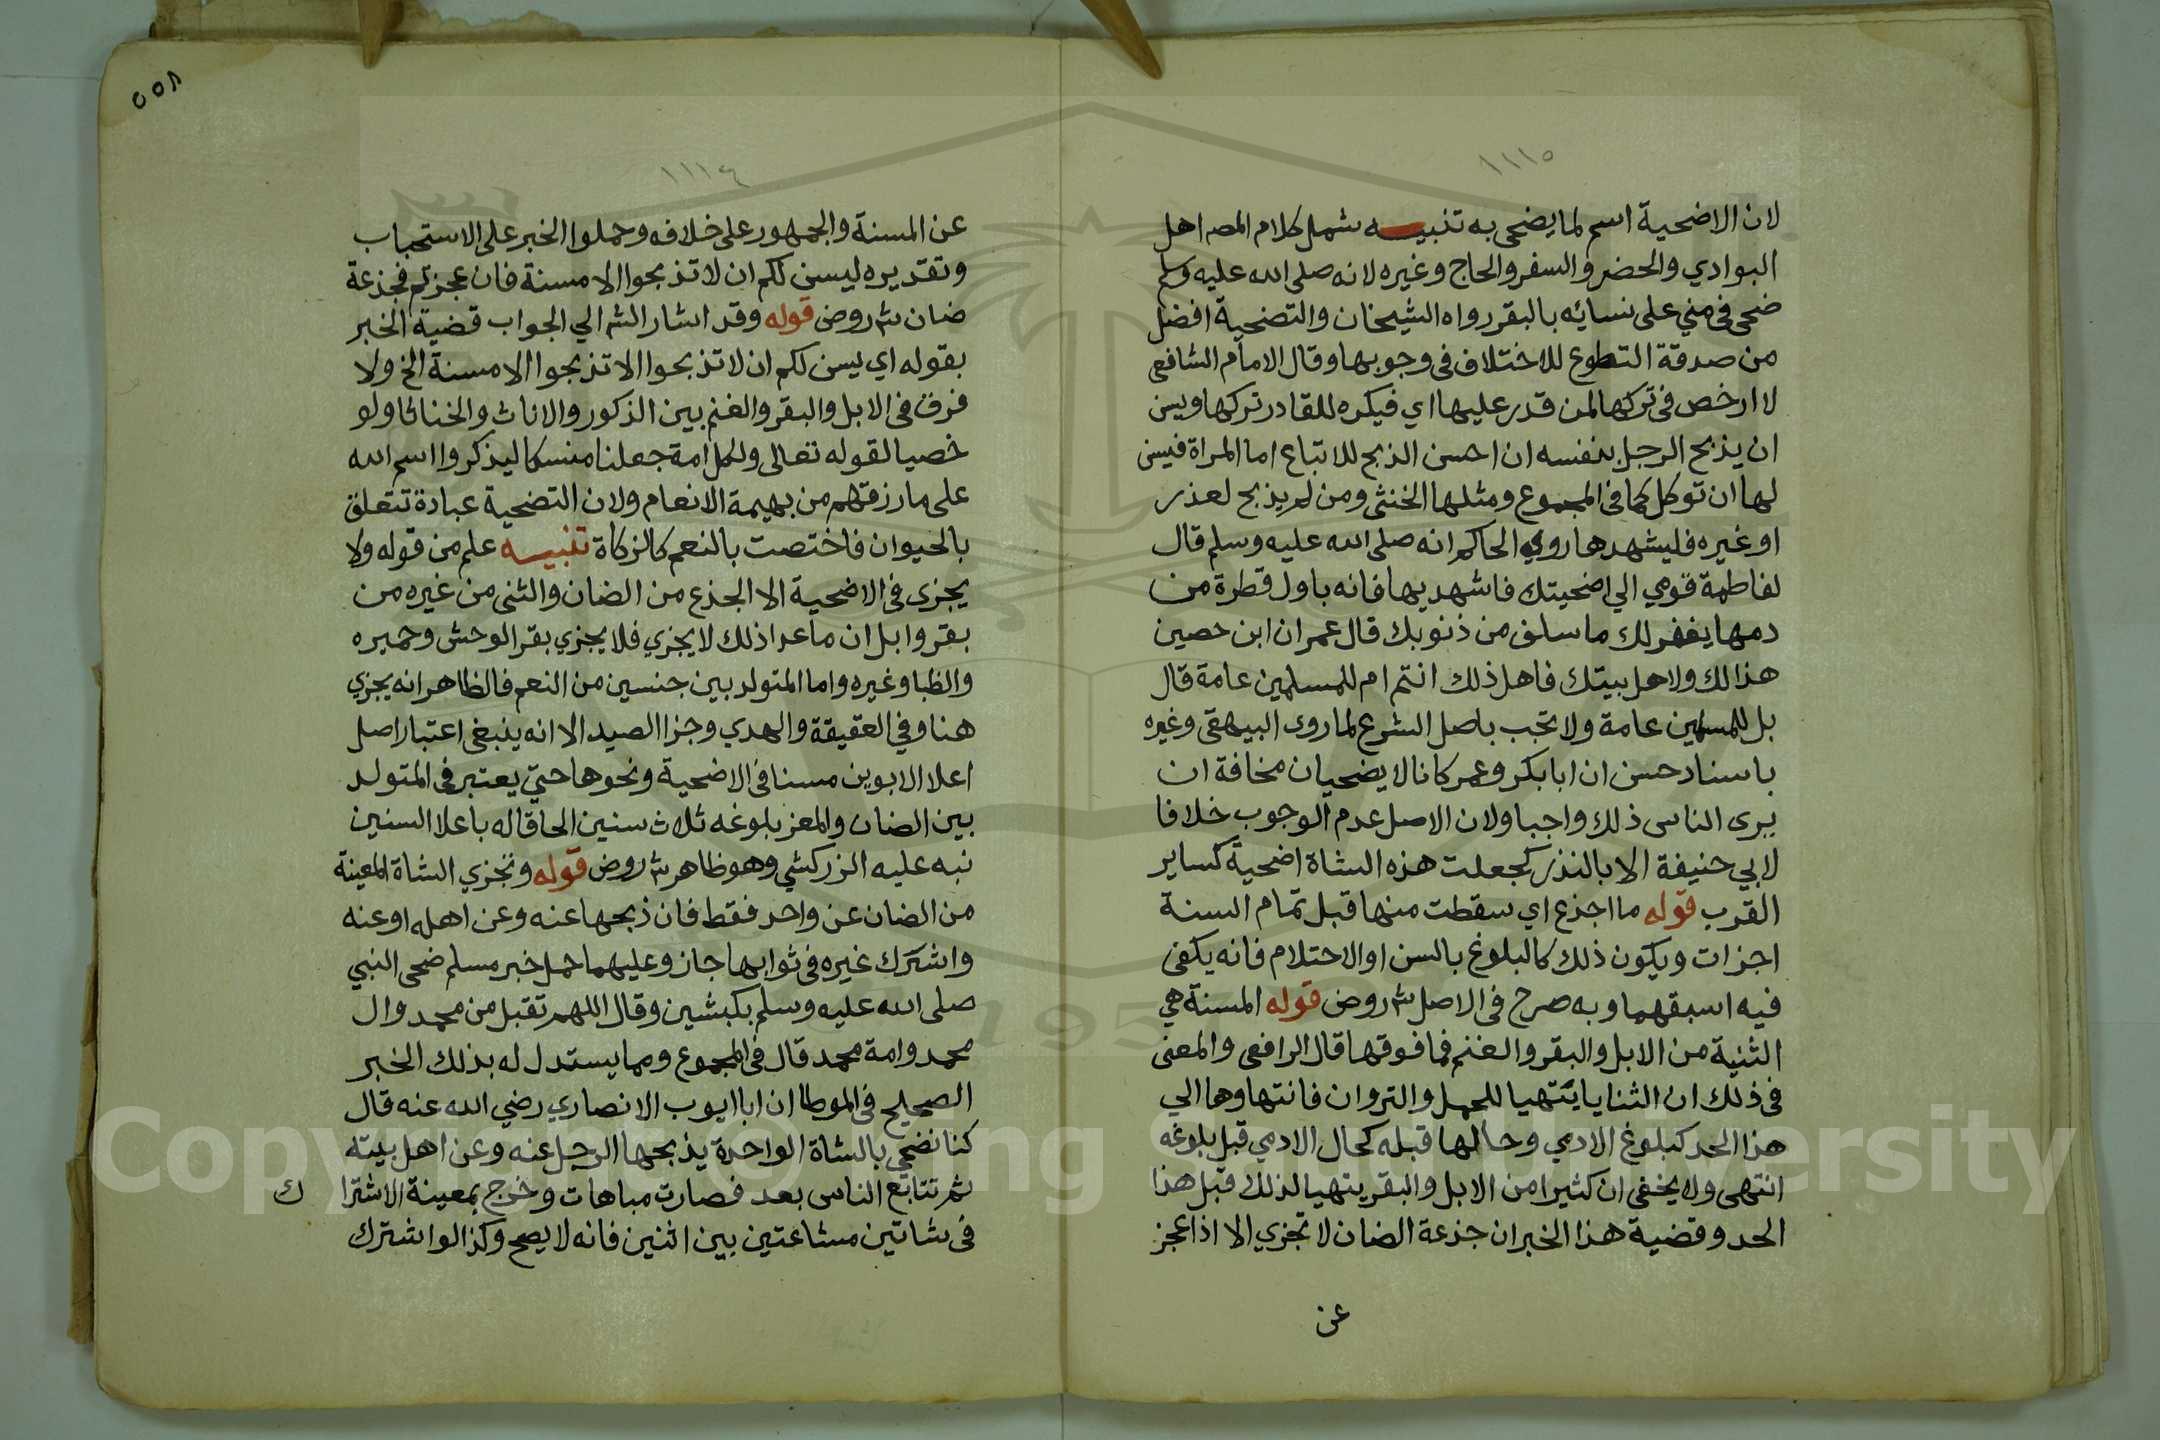 ١١١٥
لان الاضحية اسم لما يضحى به تنبيه شمل كلام المصه اهل
البوادي والحضر والسفر والحاج وغيره لانه صلى الله عليه وسلم
ضحى في مني على نسائه بالبقر رواه الشيخان والتضحية افضل
من صدقة التطوع للاختلاف في وجوبها وقال الامام الشافعي
لا ارخص في تركها لمن قدر عليها اي فيكره للقادر تركها ويسن
ان يذبح الرجل بنفسه ان احسن الذبح للاتباع اما المراة فيسن
لها ان توكل كما في المجموع ومثلها الخنثى ومن لم يذبح لعذر
او غيره فليشهدها روي الحاكم انه صلى الله عليه وسلم قال
لفاطمة قومي الي اضحيتك فاشهديها فانه باول قطرة من
دمها يغفر لك ما سلف من ذنوبك قال عمران ابن حصين
هذا لك ولاهل بيتك فاهل ذلك انتم ام للمسلمين عامة قال
بل للمسلمين عامة ولا تجب باصل الشرع لما روى البيهقي وغيره
باسناد حسن ان ابا بكر وعمر كانا لا يضحيان مخافة ان
يرى الناس ذلك واجبا ولان الاصل عدم الوجوب خلافا
لابي حنيفة الا بالنذر كجعلت هذه الشاة اضحية كساير
القرب قوله ما اجذع اي سقطت منها قبل تمام السنة
اجزات ويكون ذلك كالبلوغ بالسن او الاحتلام فانه يكفي
فيه اسبقهما وبه صرح في الاصل ش روض قوله المسنة هي
الثنية من الابل والبقر والغنم فما فوقها قال الرافعي والمعنى
في ذلك ان الثنايا يتهيا للحمل والنزوان فانتهاوها الي
هذا الحد كبلوغ الادمي وحالها قبله كحال الادمي قبل بلوغه
انتهى ولا يخفى ان كثيرا من الابل والبقر يتهيا لذلك قبل هذا
الحد وقضية هذا الخبر ان جذعة الضان لا تجزي الا اذا عجز
عن
٥٥٨
١١١٤
عن المسنة والجمهور على خلافه وحملوا الخبر على الاستحباب
وتقديره ليسن لكم ان لا تذبحوا الا مسنة فان عجزتم فجذعة
ضان ش روض قوله وقد اشار الش الي الجواب قضية الخبر
بقوله اي يسن لكم ان لا تذبحوا الا تذبحوا الا مسنة الخ ولا
فرق في الابل والبقر والغنم بين الذكور والاناث والخناثا ولو
خصيا لقوله تعالى ولكل امة جعلنا منسكا ليذكروا اسم الله
على ما رزقهم من بهيمة الانعام ولان التضحية عبادة تتعلق
بالحيوان فاختصت بالنعم كالزكاة تنبيه علم من قوله ولا
يجزى في الاضحية الا الجذع من الضان والثنى من غيره من
بقر وابل ان ما عدا ذلك لا يجزي فلا يجزي بقر الوحش وحميره
والظبا وغيره واما المتولد بين جنسين من النعم فالظاهر انه يجزي
هنا وفي العقيقة والهدي وجزا الصيد الا انه ينبغي اعتبار اصل
اعلا الابوين مسنا في الاضحية ونحوها حتى يعتبر في المتولد
بين الضان والمعز بلوغه ثلاث سنين الحاقا له باعلا السنين
نبه عليه الزركشي وهو ظاهر ش روض قوله وتجزي الشاة المعينة
من الضان عن واحد فقط فان ذبحها عنه وعن اهله او عنه
واشترك غيره في ثوابها جاز وعليهما حمل خبر مسلم ضحى النبي
صلى الله عليه وسلم بكبشين وقال اللهم تقبل من محمد وال
محمد وامة محمد قال في المجموع ومما يستدل له بذلك الخبر
الصحيح في الموطا ان ابا ايوب الانصاري رضي الله عنه قال
كنا نضحي بالشاة الواحدة يذبحها الرجل عنه وعن اهل بيته
ثم تتابع الناس بعد فصارت مباهات وخرج بمعينة الاشترا ك
في شاتين مشاعتين بين اثنين فانه لا يصح وكذا لو اشترك
Copyright © King Saud University
1957